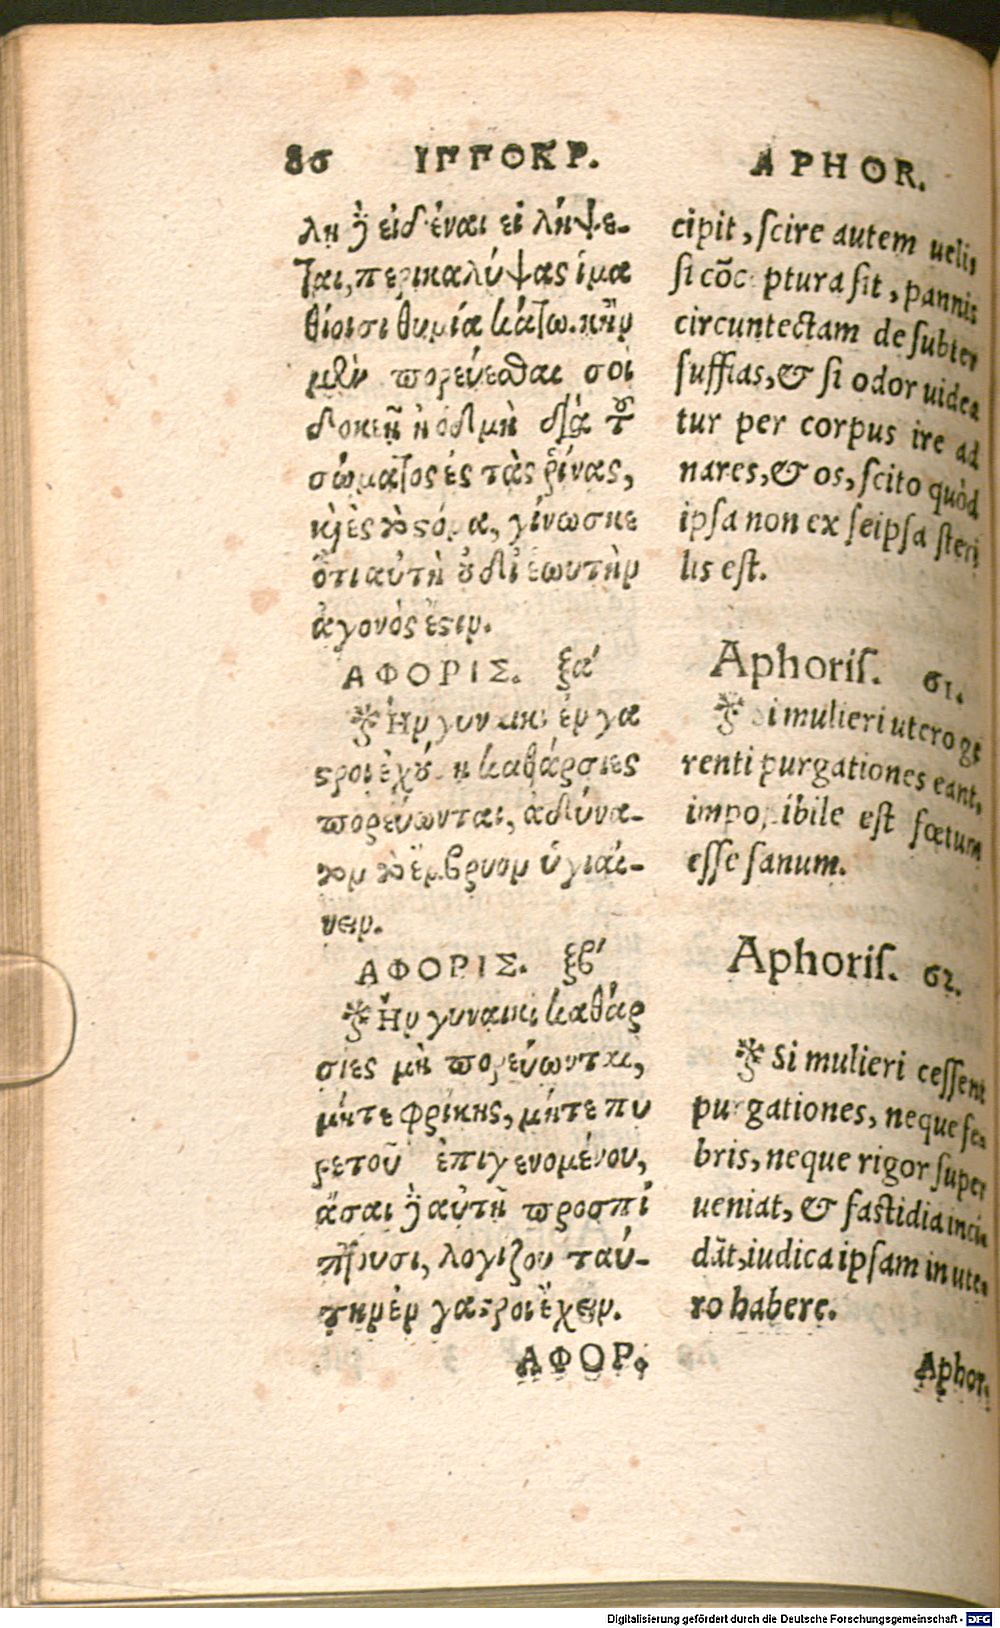 86 ΙΠΠΟΚΡ.
λη δὲ εἰδέναι εἰ λήψε-
ται, περικαλύψας ἱμα
τίοισι θυμία κάτω. κἢν
μὲν πορεύεσθαι σοὶ
δοκέῃ ἡ ὀδμὴ διὰ τοῦ
σώματος ἐς τὰς ῥῖνας,
καὶ ἐς τὸ στόμα, γίνωσκε
ὅτι αὐτὴ οὐ δι' ἑωυτὴν
ἄγονός ἐστιν.
ΑΦΟΡΙΣ. ξα'
Ἢν γυναικὶ ἐν γα
στρὶ ἐχούσῃ καθάρσιες
πορεύωνται, ἀδύνα-
τον τὸ ἔμβρυον ὑγιαί-
νειν.
ΑΦΟΡΙΣ. ξβ'
Ἢν γυναικὶ καθάρ
σιες μὴ πορεύωνται,
μήτε φρίκης, μήτε πυ
ρετοῦ ἐπιγενομένου,
ἄσαι δὲ αὐτῇ προσπί
πτουσι, λογίζου ταύ-
την ἐν γαστρὶ ἔχειν.
ΑΦΟΡ.
APHOR.
cipit, scire autem uelis
si cõc ptura sit, pannis
circuntectam de subter
suffias, & si odor uidea
tur per corpus ire ad
nares, & os, scito quòd
ipsa non ex seipsa steri
lis est.
Aphoris. 61.
Si mulieri utero ge
renti purgationes eant,
impossibile est fœtum
esse sanum.
Aphoris. 62.
Si mulieri cessent
purgationes, neque fe-
bris, neque rigor super
ueniat, & fastidia inci-
dãt, iudica ipsam in ute-
ro habere.
Aphor.
Digitalisierung gefördert durch die Deutsche Forschungsgemeinschaft - DFG